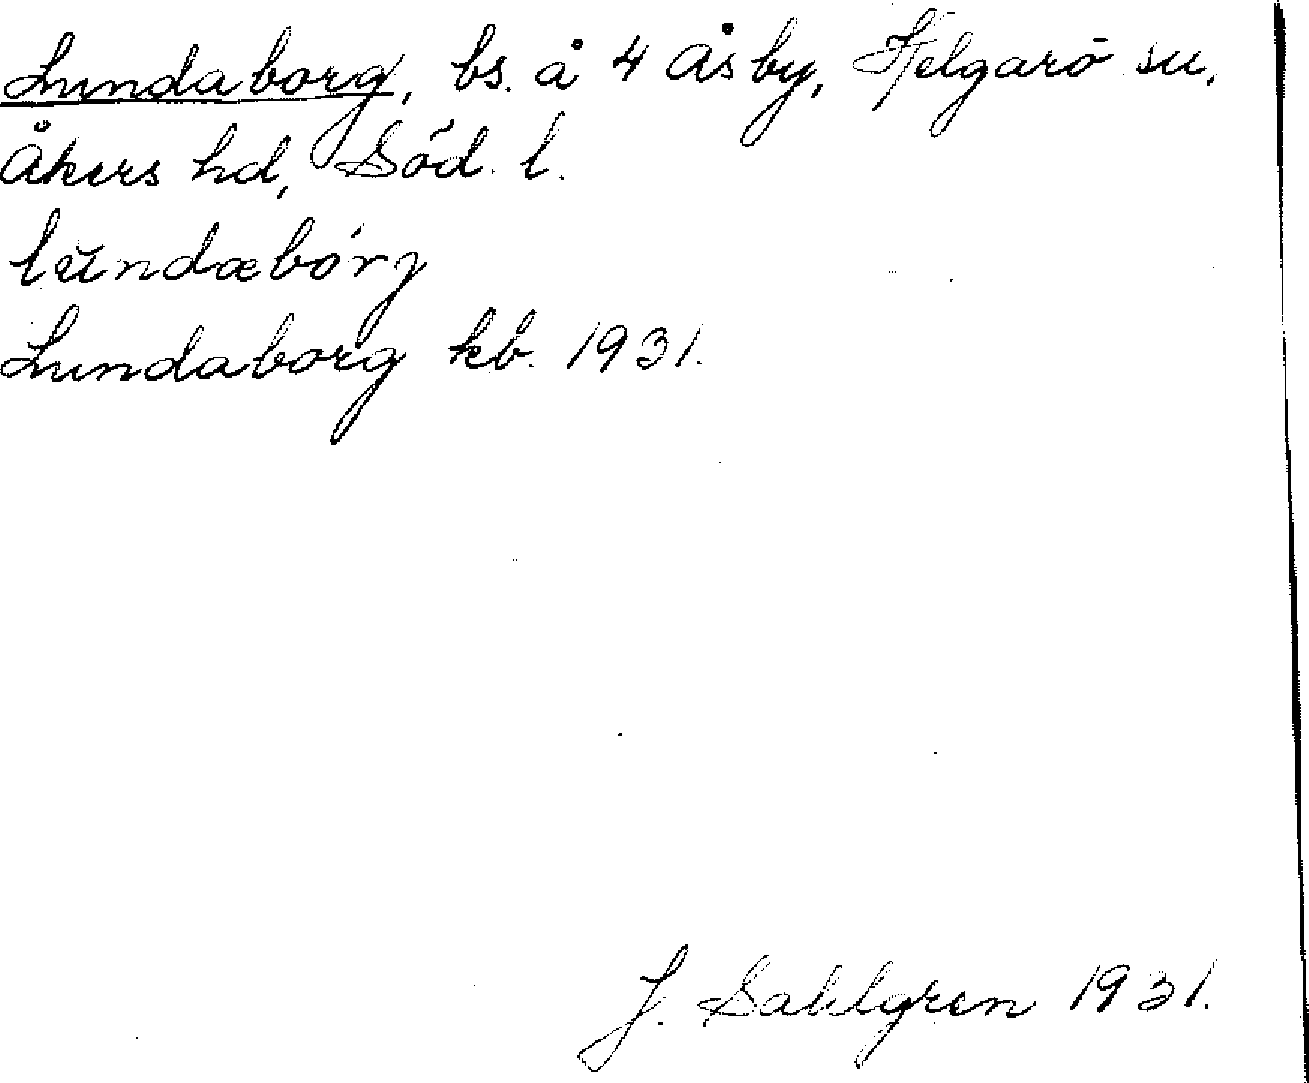 Lundaborg, bs. å 4 Åsby, Helgarö sn,
Åkers hd, Söd. l.
lŭndæbórj
Lundaborg kb. 1931.
J. Sahlgren 1931.